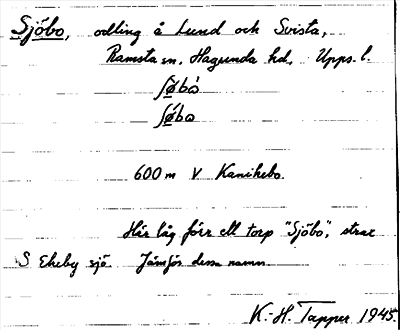 Sjöbo, odling å Lund och Svista,
Ramsta sn, Hagunda hd, Upps. l.
ʃø̀bὼ
ʃǿbω
600 m V Kanikebo.
Här låg förr ett torp "Sjöbo", strax
S Ekeby sjö. Jämför dessa namn.
K.-H. Tapper 1945.